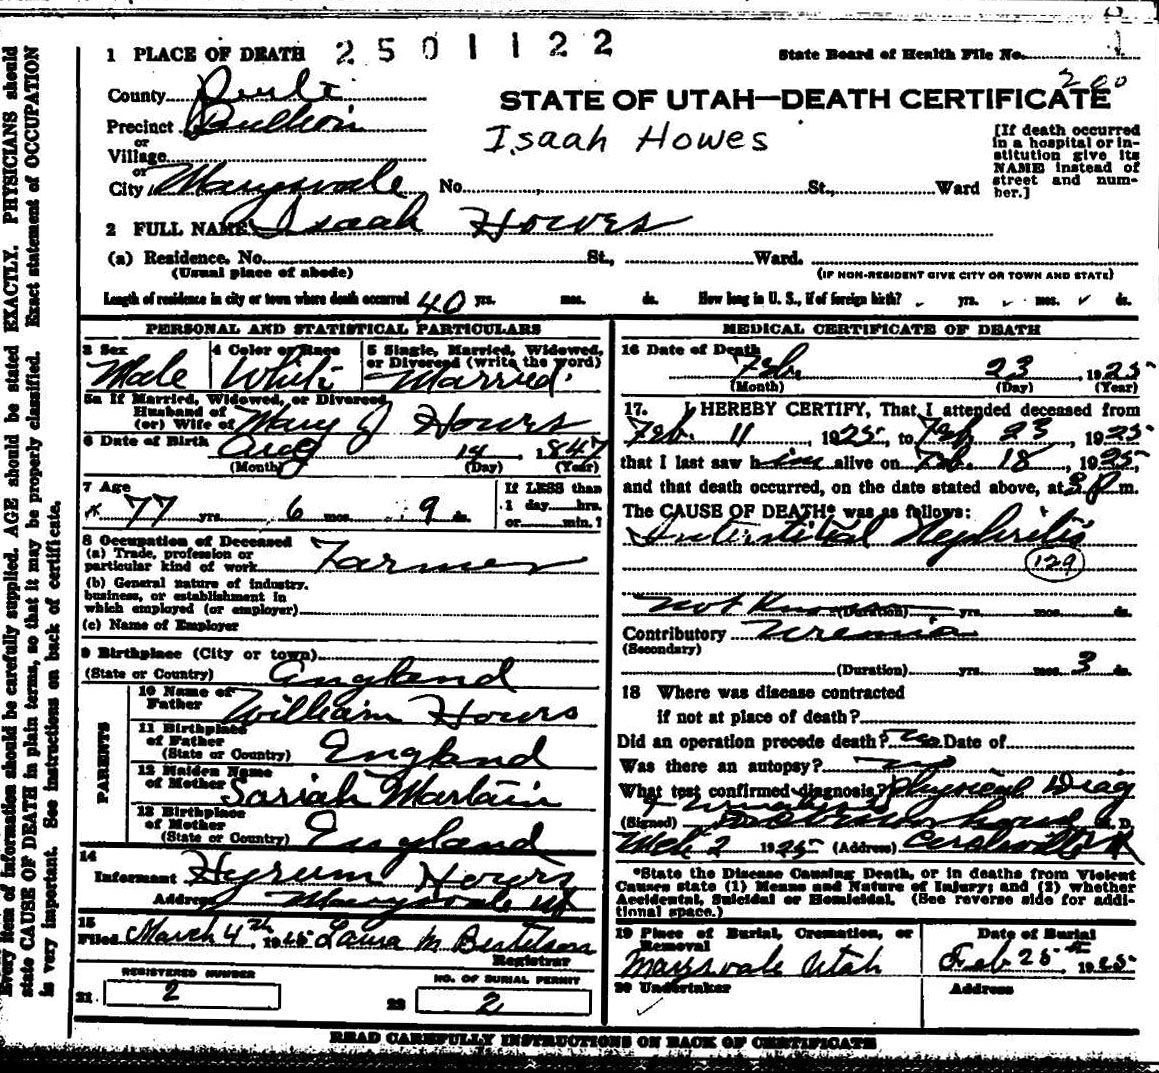 Every item of information should be carefully supplied. AGE should be stated EXACTLY. PHYSICIANS should
state CAUSE OF DEATH in plain terms, so that it may be properly classified. Exact statement of OCCUPATION
is very important. See instructions on back of certificate.
1 PLACE OF DEATH 2501122 State Board of Health File No.
200
County
STATE OF UTAH—DEATH CERTIFICATE
Precinct Bullion
Isaah Howes
or
Village
or
City Marysvale No. St., Ward
[If death occurred
in a hospital or in-
stitution give its
NAME instead of
street and num-
ber.]
2 FULL NAME Isaah Howes
(a) Residence, No. St., Ward.
(Usual place of abode) (IF NON-RESIDENT GIVE CITY OR TOWN AND STATE)
Length of residence in city or town where death occurred 40 yrs. mos. ds. How long in U. S., if of foreign birth? yrs. mos. ds.
PERSONAL AND STATISTICAL PARTICULARS
3 Sex 4 Color or Race 5 Single, Married, Widowed,
or Divorced (write the word)
Male White Married
5a If Married, Widowed, or Divorced
Husband of
(or) Wife of Mary J Howes
6 Date of Birth Aug 14, 1847
(Month) (Day) (Year)
7 Age
77 yrs. 6 mos. 9 ds.
If LESS than
1 day hrs.
or min.?
8 Occupation of Deceased
(a) Trade, profession or
particular kind of work Farmer
(b) General nature of industry,
business, or establishment in
which employed (or employer)
(c) Name of Employer
9 Birthplace (City or town)
(State or Country) England
PARENTS
10 Name of
Father William Howes
11 Birthplace
of Father
(State or Country) England
12 Maiden Name
of Mother Sariah
13 Birthplace
of Mother
(State or Country) England
14
Informant Hyrum Howes
Address Marysvale Ut
15
Filed March 4th, 1925 Laura M Bertelson
Registrar
REGISTERED NUMBER NO. OF BURIAL PERMIT
21. 2 22 2
MEDICAL CERTIFICATE OF DEATH
16 Date of Death
Feb 23, 1925
(Month) (Day) (Year)
17. I HEREBY CERTIFY, That I attended deceased from
Feb. 11, 1925, to Feb 23, 1925
that I last saw him alive on Feb. 18, 1925,
and that death occurred, on the date stated above, at 3 P m.
The CAUSE OF DEATH* was as follows:
Interstitial Nephritis
129
not known (Duration) yrs. mos. ds.
Contributory Uremia
(Secondary)
(Duration) yrs. mos. 3 ds.
18 Where was disease contracted
if not at place of death?
Did an operation precede death? no Date of
Was there an autopsy? no
What test confirmed diagnosis? Physical Diag
(Signed) M. D.
Mch 2 1925 (Address)
*State the Disease Causing Death, or in deaths from Violent
Causes state (1) Means and Nature of Injury; and (2) whether
Accidental, Suicidal or Homicidal. (See reverse side for addi-
tional space.)
19 Place of Burial, Cremation, or
Removal
Marysvale Utah
Date of Burial
Feb 25th, 1925
20 Undertaker Address
READ CAREFULLY INSTRUCTIONS ON BACK OF CERTIFICATE